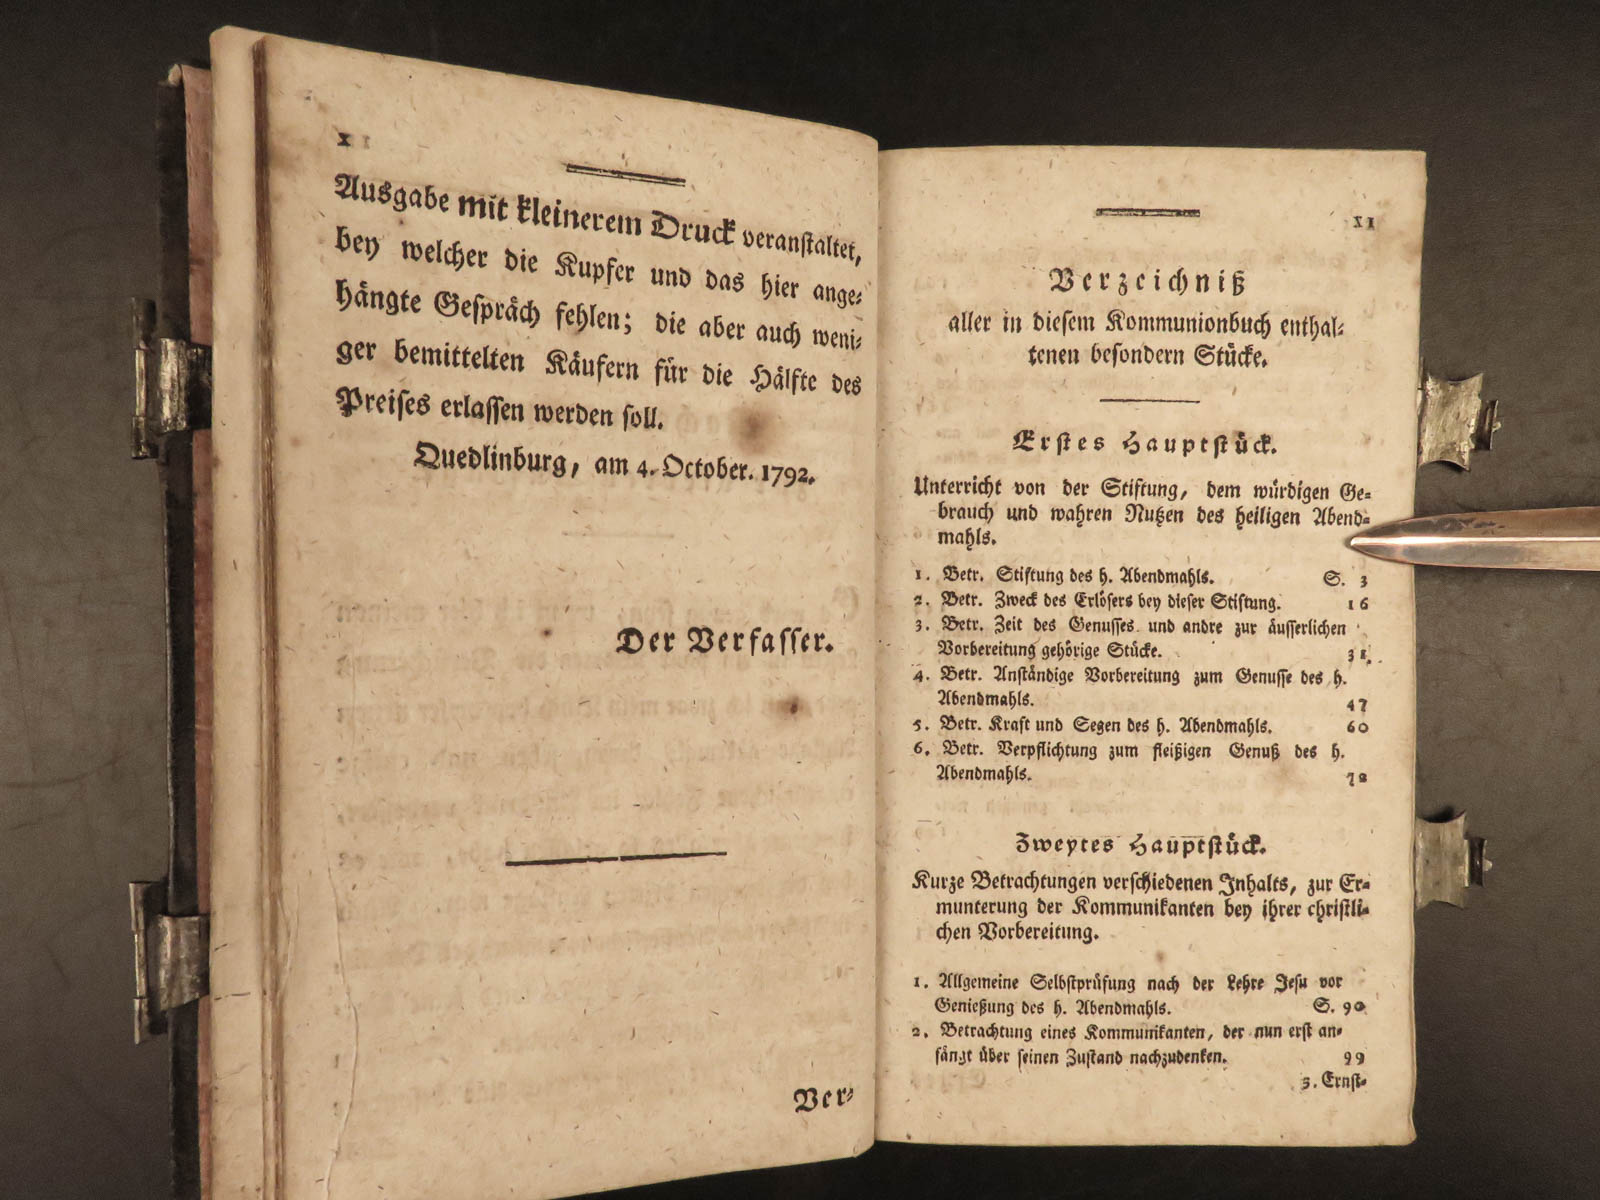 x
Ausgabe mit kleinerem Druck veranſtaltet,
bey welcher die Kupfer und das hier ange-
hängte Geſpräch fehlen; die aber auch weni-
ger bemittelten Käufern für die Hälfte des
Preiſes erlaſſen werden ſoll.
Quedlinburg, am 4. October. 1792.
Der Verfaſſer.
Ver-
XI
Verzeichniß
aller in dieſem Kommunionbuch enthal-
tenen beſondern Stücke.
Erſtes Hauptſtück.
Unterricht von der Stiftung, dem würdigen Ge-
brauch und wahren Nutzen des heiligen Abend-
mahls.
1. Betr. Stiftung des h. Abendmahls. S. 3
2. Betr. Zweck des Erlöſers bey dieſer Stiftung. 16
3. Betr. Zeit des Genuſſes und andre zur äuſſerlichen
Vorbereitung gehörige Stücke. 31.
4. Betr. Anſtändige Vorbereitung zum Genuſſe des h.
Abendmahls. 47
5. Betr. Kraft und Segen des h. Abendmahls. 60
6. Betr. Verpflichtung zum fleißigen Genuß des h.
Abendmahls. 72
Zweytes Hauptſtück.
Kurze Betrachtungen verſchiedenen Inhalts, zur Er-
munterung der Kommunikanten bey ihrer chriſtli-
chen Vorbereitung.
1. Allgemeine Selbſtprüfung nach der Lehre Jeſu vor
Genießung des h. Abendmahls. S. 90
2. Betrachtung eines Kommunikanten, der nun erſt an-
fängt über ſeinen Zuſtand nachzudenken. 99
3. Ernſt-